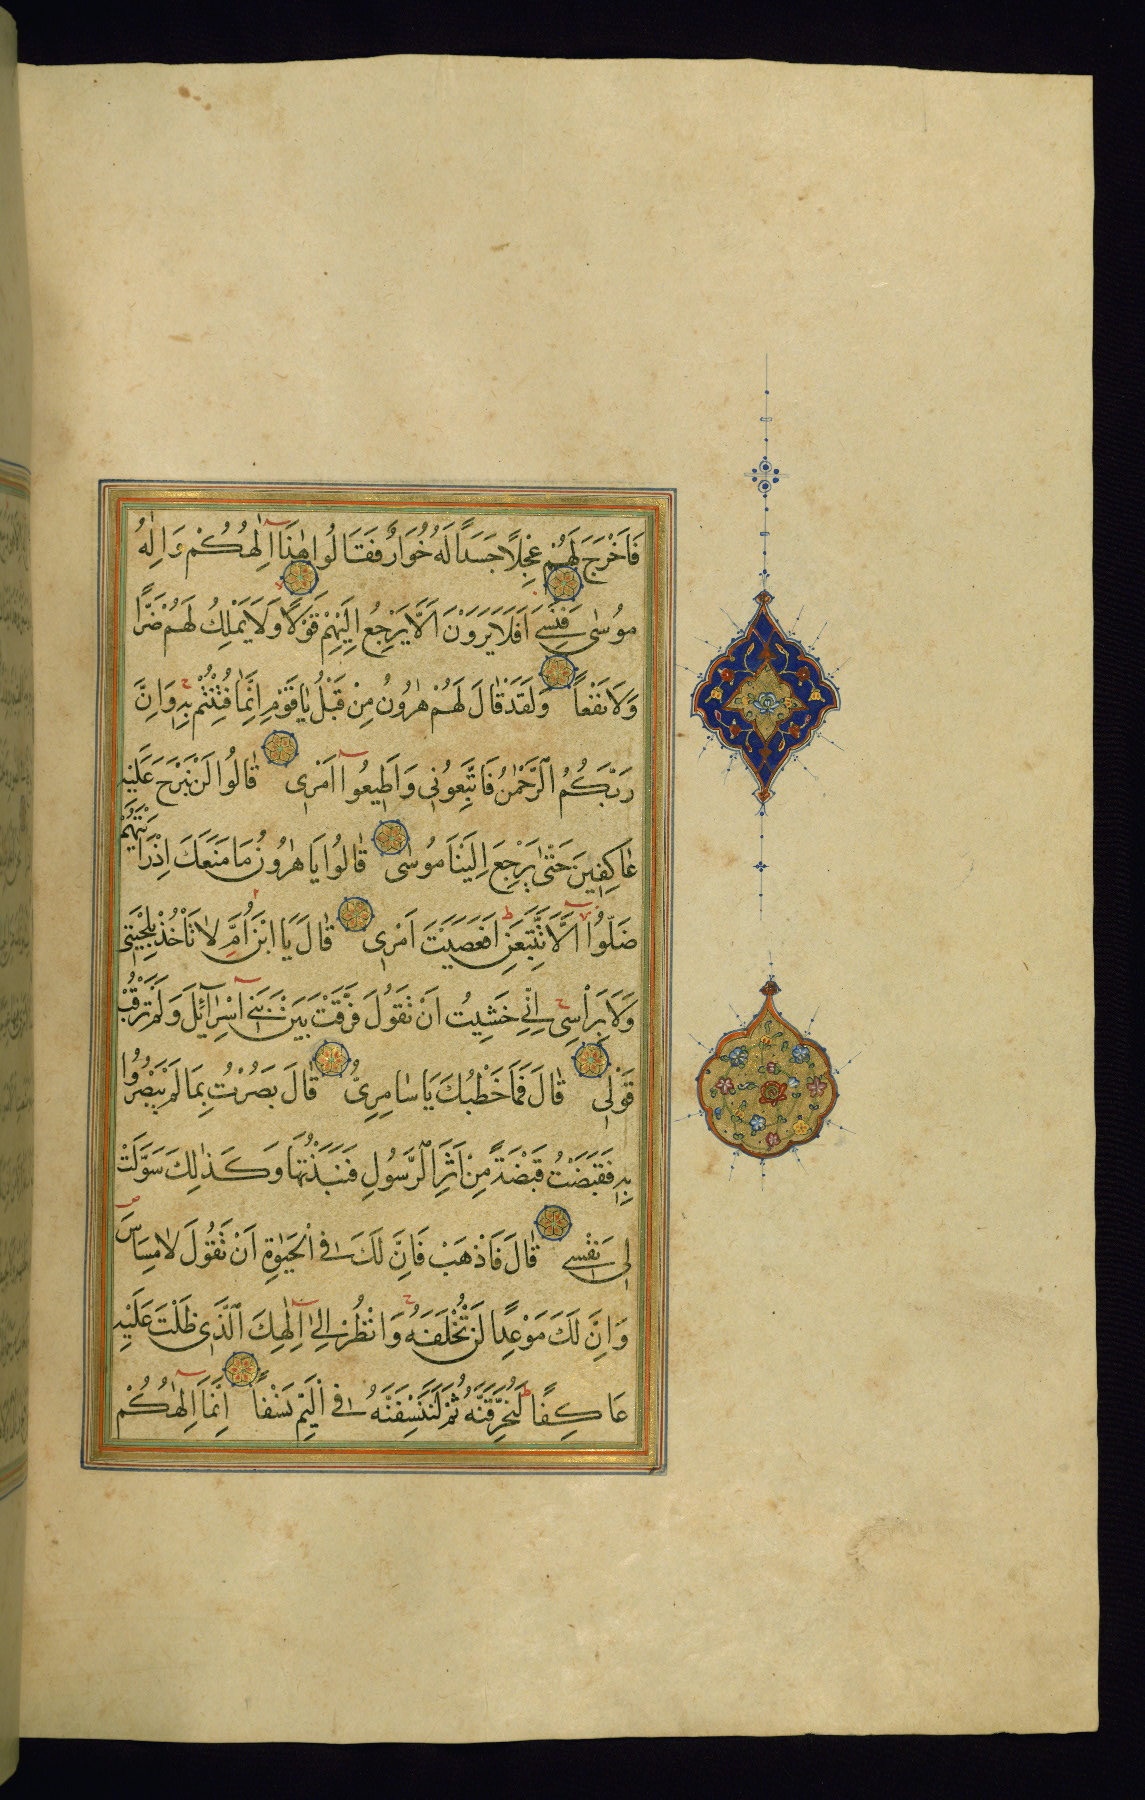 فَاَخْرَجَ لَهُمْ عِجْلًا جَسَدًا لَهُ خُوَارٌ فَقَالُوا هٰذَا اِلٰهُكُمْ وَاِلٰهُ
مُوسٰى فَنَسِيَ اَفَلَا يَرَوْنَ اَلَّا يَرْجِعُ اِلَيْهِمْ قَوْلًا وَلَا يَمْلِكُ لَهُمْ ضَرًّا
وَلَا نَفْعًا وَلَقَدْ قَالَ لَهُمْ هٰرُونُ مِنْ قَبْلُ يَا قَوْمِ اِنَّمَا فُتِنْتُمْ بِهِ وَاِنَّ
رَبَّكُمُ الرَّحْمٰنُ فَاتَّبِعُونِي وَاَطِيعُوا اَمْرِي قَالُوا لَنْ نَبْرَحَ عَلَيْهِ
عَاكِفِينَ حَتّٰى يَرْجِعَ اِلَيْنَا مُوسٰى قَالُوا يَا هٰرُونُ مَا مَنَعَكَ اِذْ رَاَيْتَهُمْ
ضَلُّوا اَلَّا تَتَّبِعَنِ اَفَعَصَيْتَ اَمْرِي قَالَ يَا ابْنَ اُمَّ لَا تَأْخُذْ بِلِحْيَتِي
وَلَا بِرَأْسِي اِنِّي خَشِيتُ اَنْ تَقُولَ فَرَّقْتَ بَيْنَ بَنِي اِسْرَائِلَ وَلَمْ تَرْقُبْ
قَوْلِي قَالَ فَمَا خَطْبُكَ يَا سَامِرِيُّ قَالَ بَصُرْتُ بِمَا لَمْ يَبْصُرُوا
بِهِ فَقَبَضْتُ قَبْضَةً مِنْ اَثَرِ الرَّسُولِ فَنَبَذْتُهَا وَكَذٰلِكَ سَوَّلَتْ
لِي نَفْسِي قَالَ فَاذْهَبْ فَاِنَّ لَكَ فِي الْحَيٰوةِ اَنْ تَقُولَ لَا مِسَاسَ
وَاِنَّ لَكَ مَوْعِدًا لَنْ تُخْلَفَهُ وَانْظُرْ اِلٰى اِلٰهِكَ الَّذِي ظَلْتَ عَلَيْهِ
عَاكِفًا لَنُحَرِّقَنَّهُ ثُمَّ لَنَنْسِفَنَّهُ فِي الْيَمِّ نَسْفًا اِنَّمَا اِلٰهُكُمُ